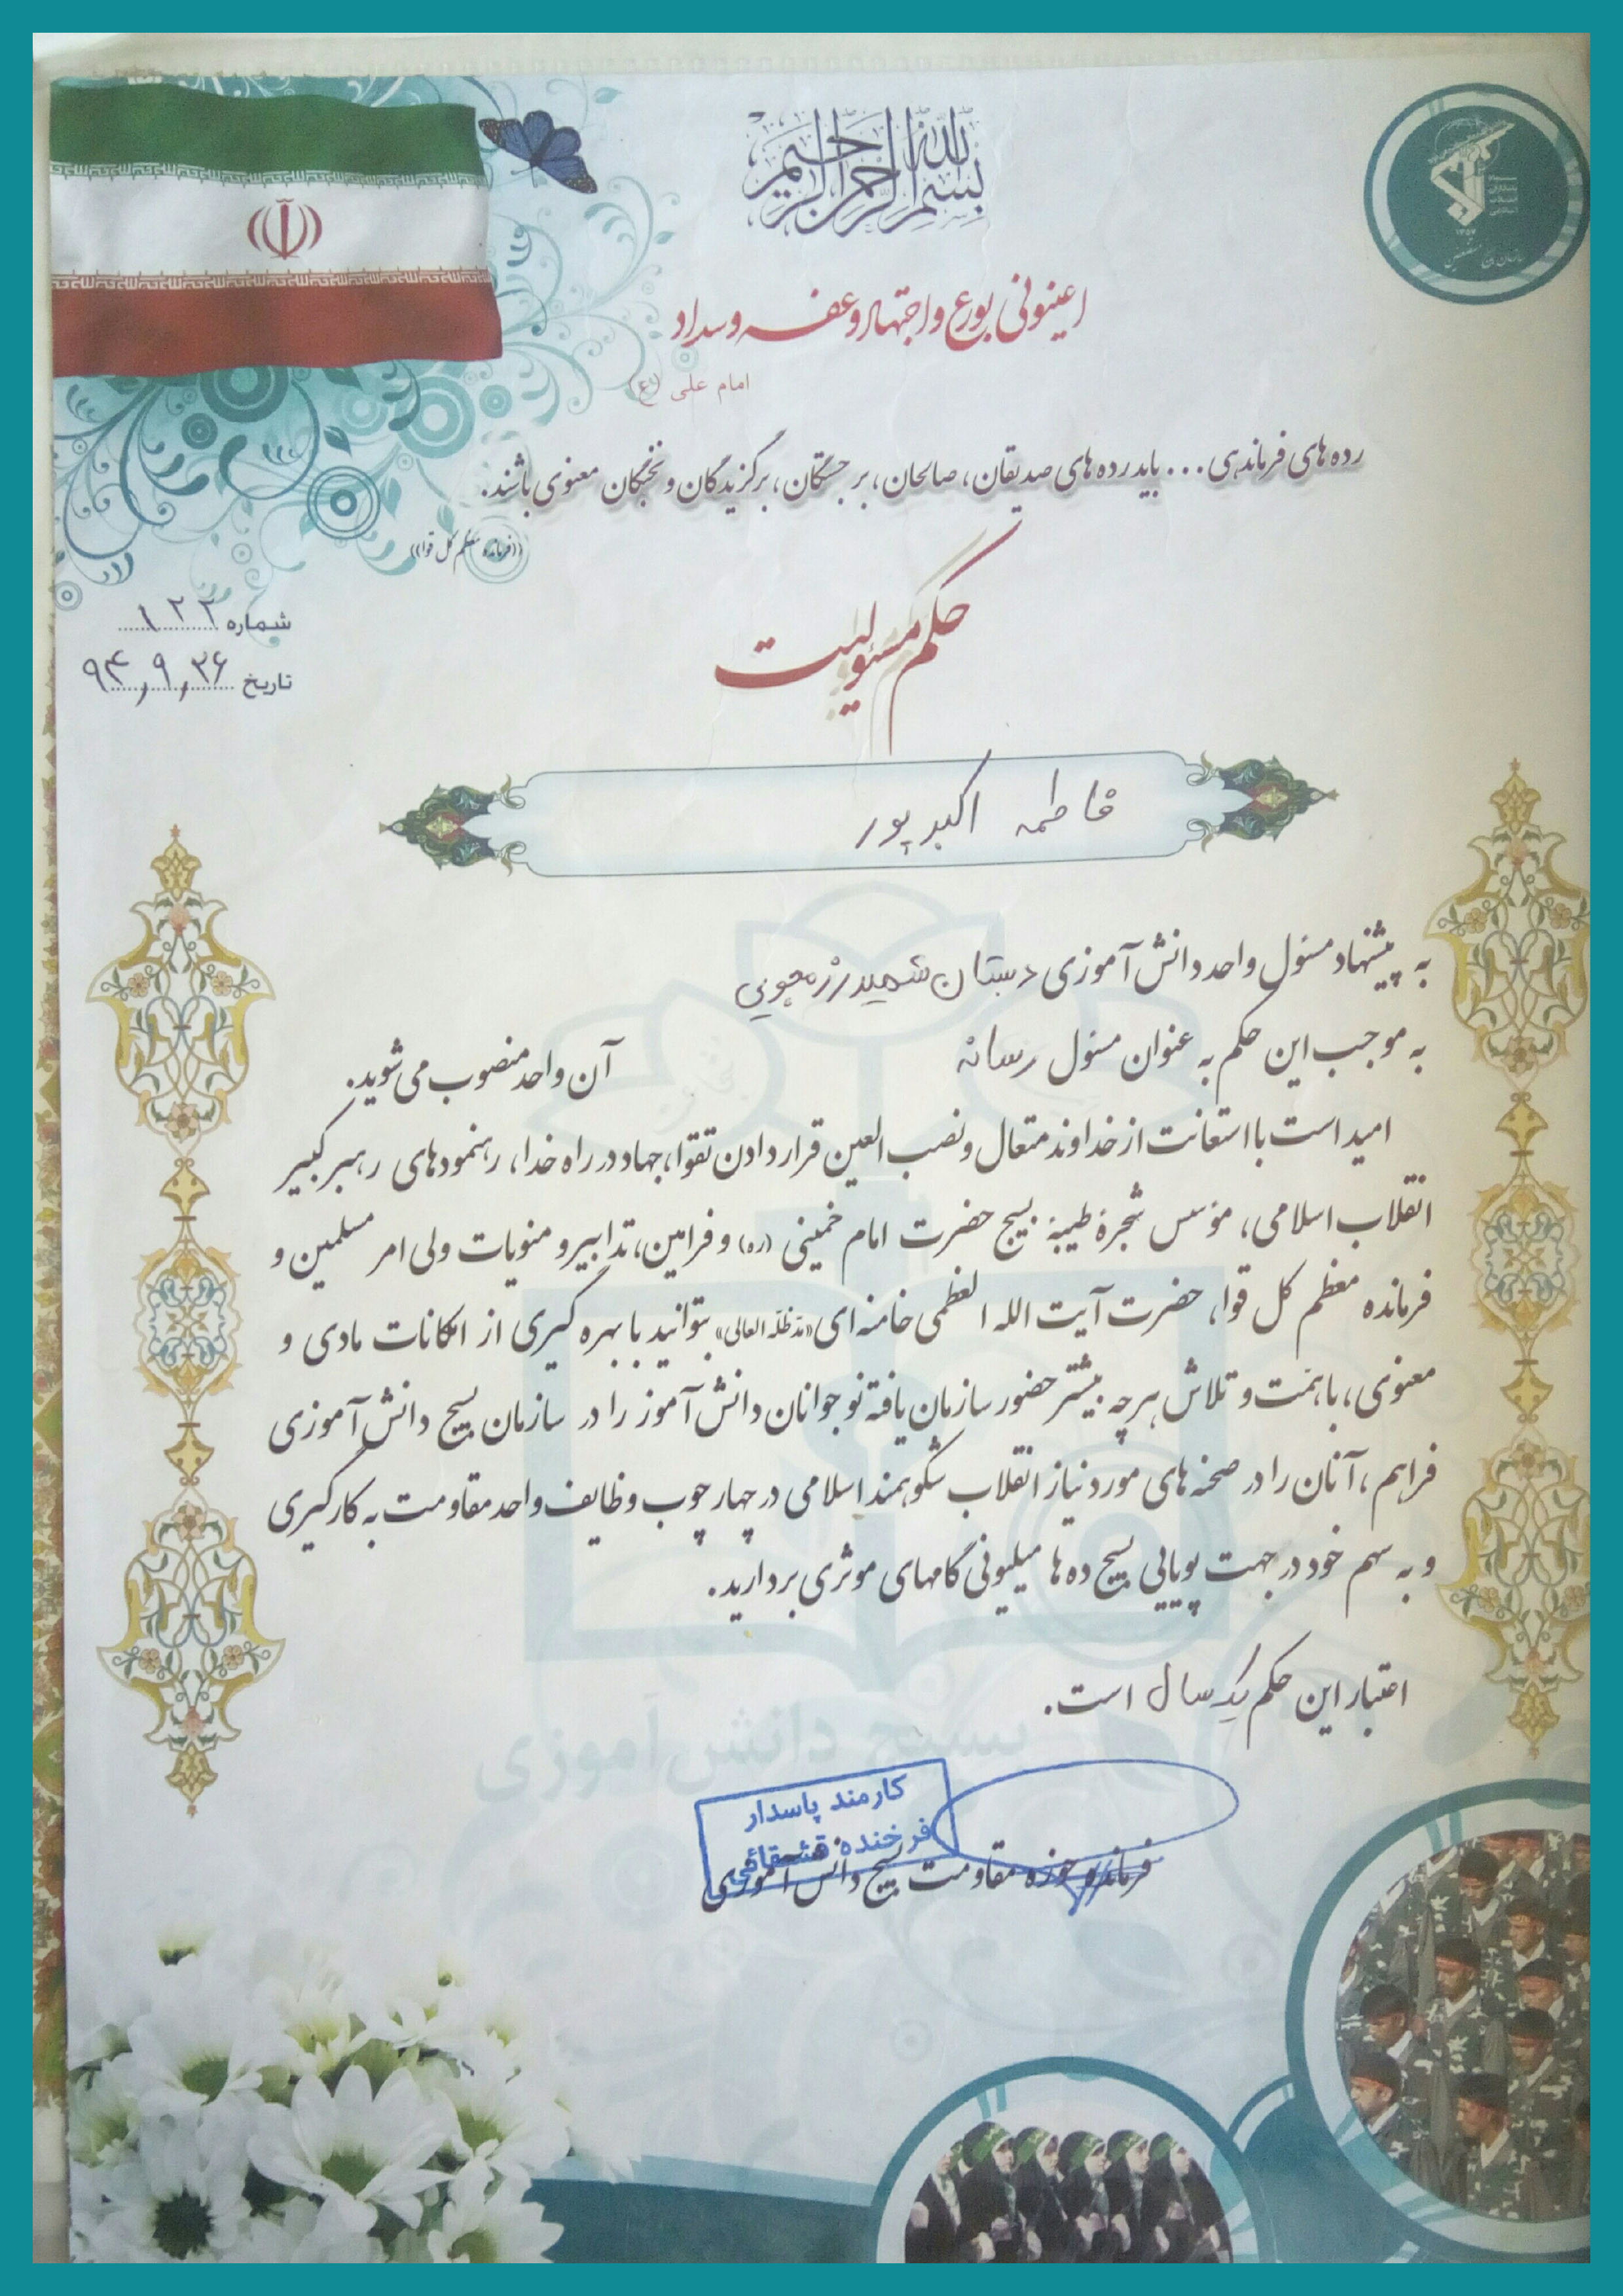 بسم الله الرحمن الرحیم
اعینونی بورع و اجتهاد و عفه و سداد
امام علی (ع)
رده های فرماندهی... باید رده های صدیقان، صالحان، برجستگان، برگزیدگان و نخبگان معنوی باشند.
((فرمانده معظم کل قوا))
شماره ۱۲۲
تاریخ ۹۴,۹,۲۶
حکم مسئولیت
فاطمه اکبرپور
به پیشنهاد مسئول واحد دانش آموزی دبستان شهید رزمجویی
به موجب این حکم به عنوان مسئول رسانه آن واحد منصوب می شوید.
امید است با استعانت از خداوند متعال و نصب العین قرار دادن تقوا، جهاد در راه خدا، رهنمودهای رهبر کبیر
انقلاب اسلامی، مؤسس شجرهٔ طیبهٔ بسیج حضرت امام خمینی (ره) و فرامین، تدابیر و منویات ولی امر مسلمین و
فرمانده معظم کل قوا، حضرت آیت الله العظمی خامنه ای «مدظله العالی» بتوانید با بهره گیری از امکانات مادی و
معنوی، با همت و تلاش هر چه بیشتر حضور سازمان یافته نوجوانان دانش آموز را در سازمان بسیج دانش آموزی
فراهم، آنان را در صحنه های مورد نیاز انقلاب شکوهمند اسلامی در چهارچوب وظایف واحد مقاومت به کارگیری
و به سهم خود در جهت پویایی بسیج ده ها میلیونی گامهای موثری بردارید.
اعتبار این حکم یک سال است.
بسیج دانش آموزی
کارمند پاسدار
فرخنده قشقائی
فرمانده حوزه مقاومت بسیج دانش آموزی